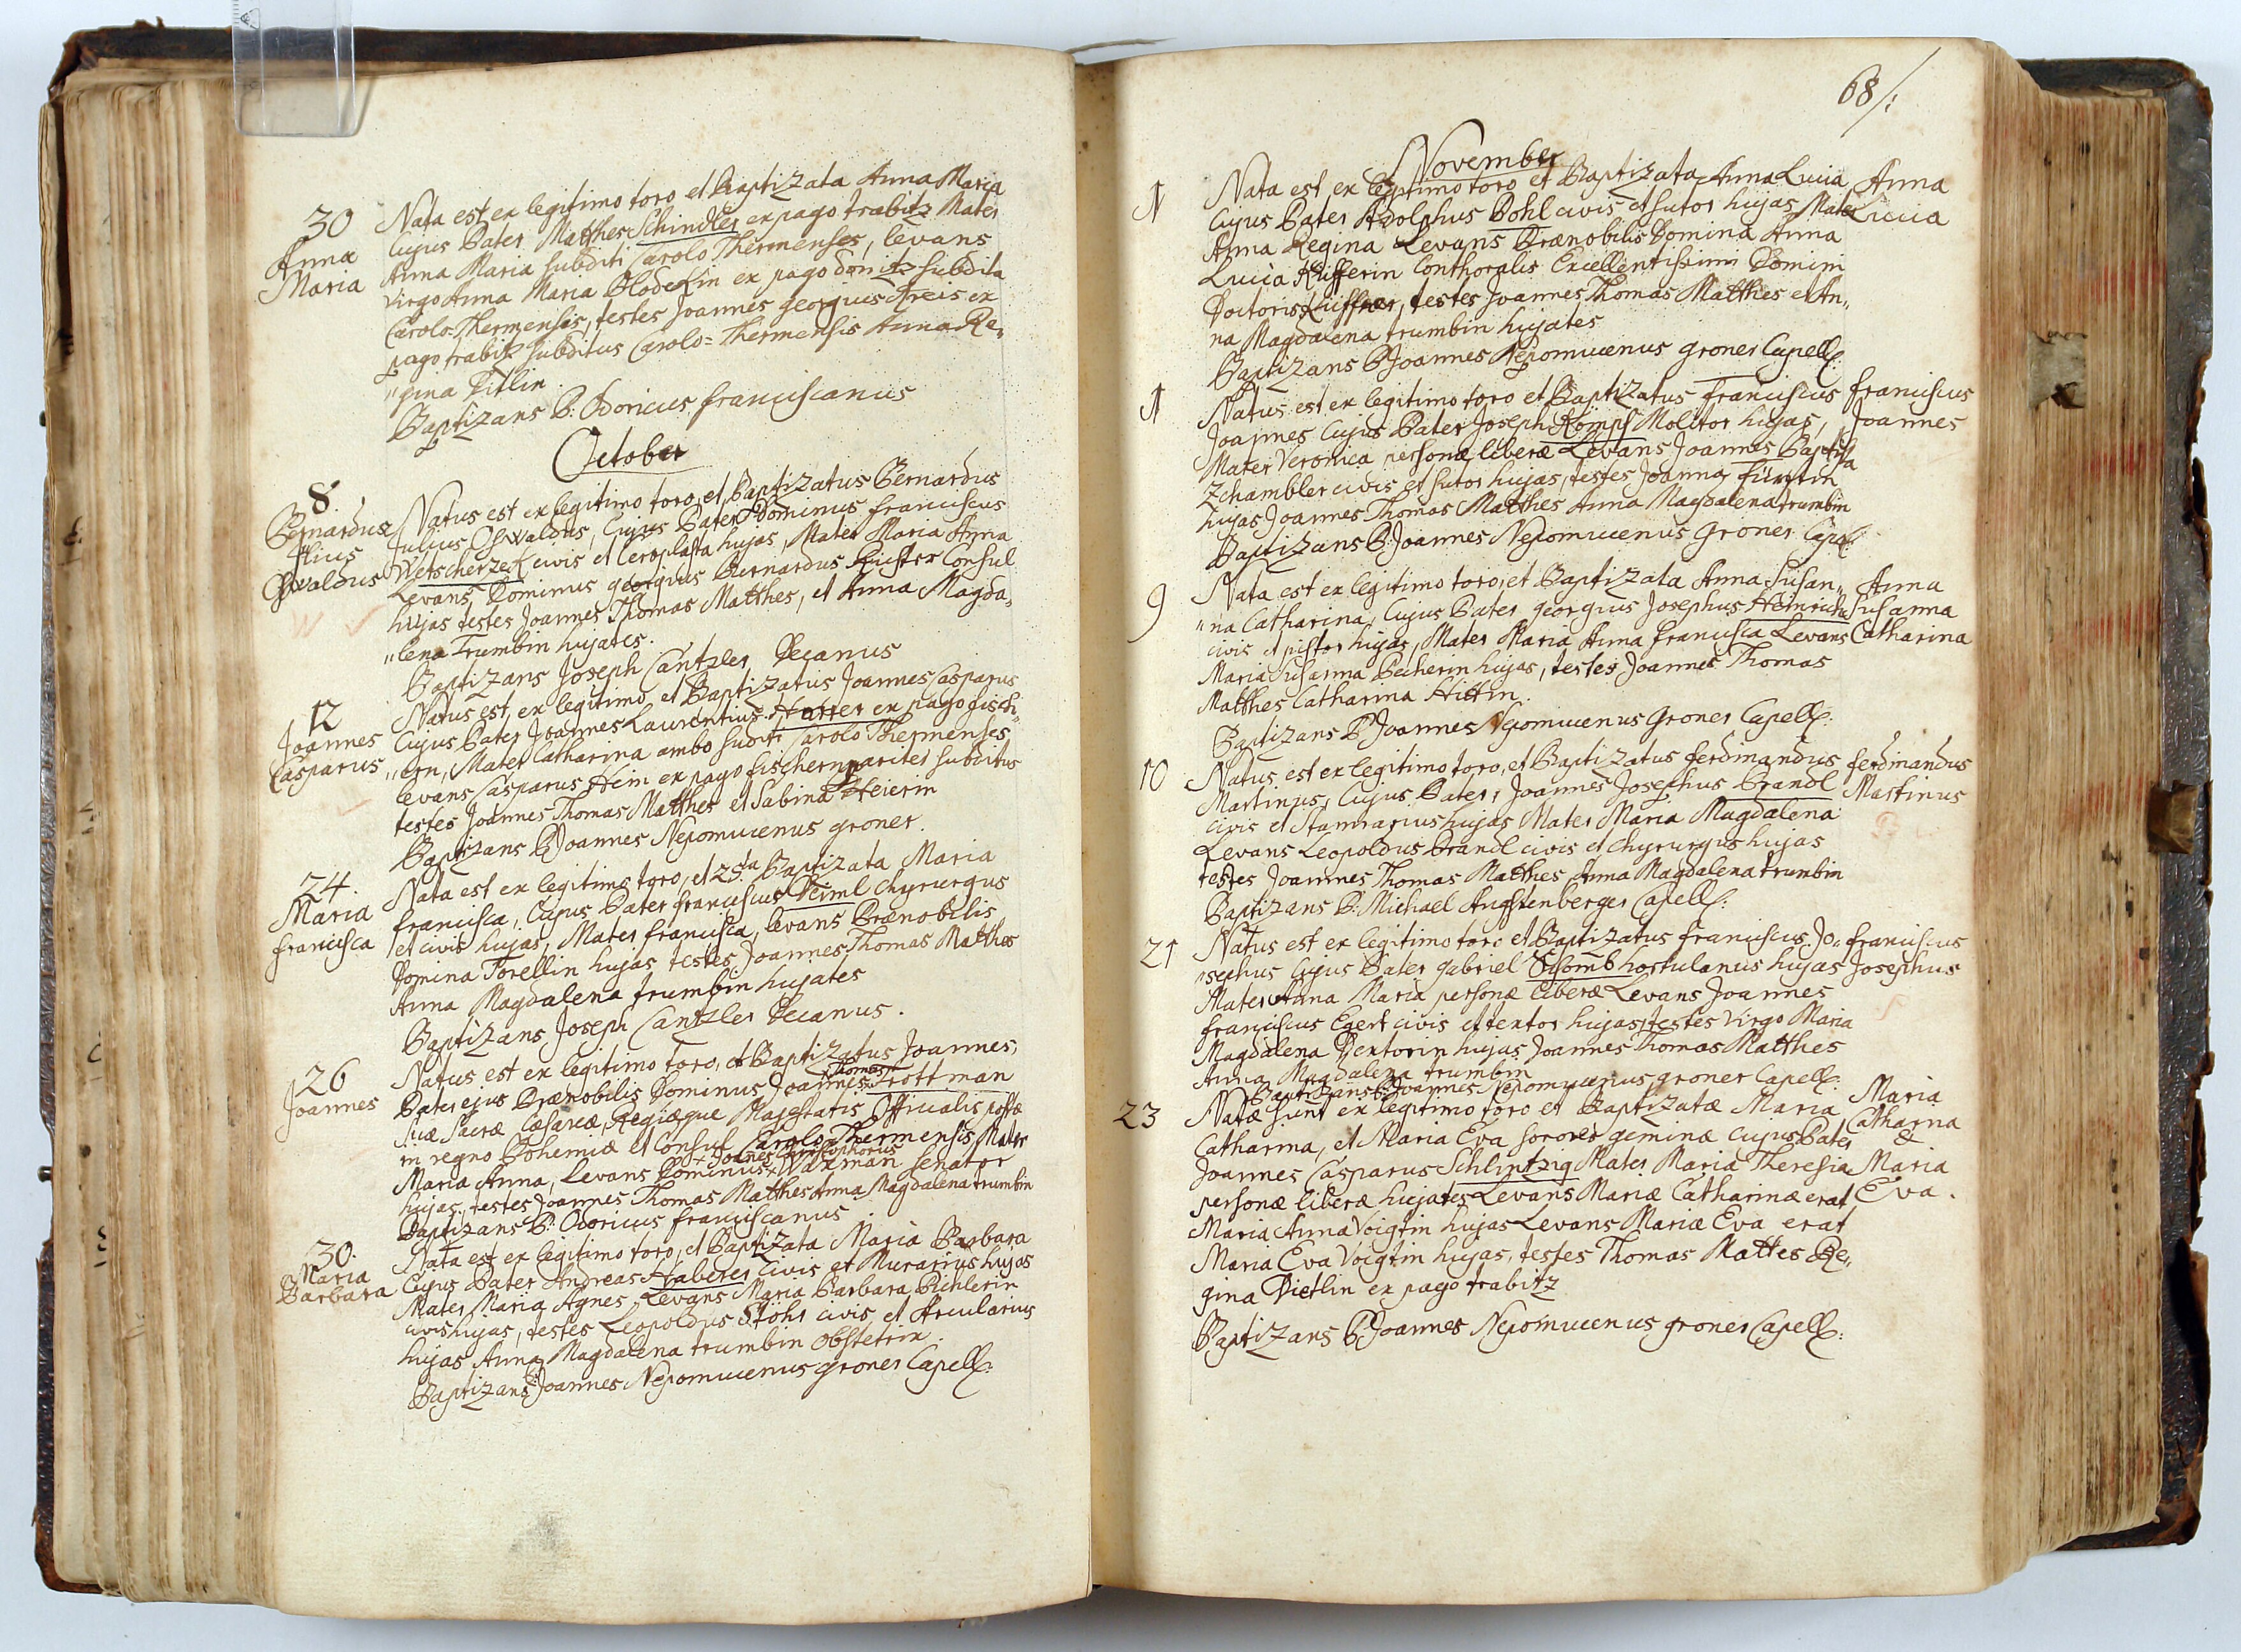 30
Anna
Maria
Nata est ex legitimo toro et Baptizata Anna Maria
Cujus Pater Matthes Schindler ex pago trabitz Mater
Anna Maria subditi Carolo Thermenses, levans
Virgo Anna Maria Plodekin ex pago donitz subdita
Carolo-Thermensis, testes Joannes georgius Preis ex
pago trabitz subditus Carolo=Thermensis Anna Re„
„gina Ditlin.
Baptizans P: Odoricus franciscanus
October
8
Bernardus
Julius
Oswaldus
Natus est ex legitimo toro, et Baptizatus Bernardus
Julius Oswaldus, Cujus Pater Dominus franciscus
Wetscherzek civis et Ceroplasta hujas, Mater Maria Anna
Levans Dominus georgius Bernardus Consul
hujas testes Joannes Thomas Matthes, et Anna Magda„
„lena Trumbin hujates.
Baptizans Joseph Cantzler Decanus
12
Joannes
Casparus
Natus est, ex legitimo et Baptizatus Joannes Casparus
Cujus Pater Joannes Laurentius Harrer ex pago fisch„
„ern, Mater Catharina ambo suditi Carolo Thermenses
levans Casparus Hein ex pago fischern pariter subditus
testes Joannes Thomas Matthes et Sabina Heierin
Baptizans P Joannes Nepomucenus groner.
24.
Maria
francisca
Nata est ex legitimo toro, et 25ta Baptizata Maria
francisca, Cujus Pater franciscus Deiml Chyrurgus
et civis hujas, Mater francisca, levans Prænobilis
Domina Torellin hujas testes Joannes Thomas Matthes
Anna Magdalena trumbin hujates
Baptizans Joseph Cantzler Decanus.
26
Joannes
Natus est ex legitimo toro, et Baptizatus Joannes,
Pater ejus Prænobilis Dominus Joannes Thomas Trottman
Suæ Sacræ Cæsareæ, Regiæque Majestatis Officialis postæ
in regno Bohemiæ et Consul Carolo-Thermensis Mater
Maria Anna, Levans Dominus + Joanes Christophorus + Waxman senator
hujas, testes Joannes Thomas Matthes Anna Magdalena trumbin
Baptizans P: Odoricus franciscanus
30.
Maria
Barbara
Nata est ex legitimo toro, et Baptizata Maria Barbara
Cujus Pater Andreas Haberer Civis et Murarius hujas
Mater Maria Agnes, Levans Maria Barbara Pichlerin
civis hujas, testes Leopoldus Stöhr civis et Arcularius
hujas Anna Magdalena trumbin obstetrix.
Baptizans P: Joannes Nepomucenus groner Capell:
68/:
November
1
Nata est ex legitimo toro et Baptizata Anna Lucia
Cujus Pater Adolphus Pohl civis et sutor hujas Mater
Anna Regina Levans Prænobilis Domina Anna
Lucia Küfferin Conthoralis Excellentissimi Domini
Doctoris Küffner, testes Joannes Thomas Matthes et An„
na Magdalena trumbin hujates
Baptizans P Joannes Nepomucenus groner Capell:
Anna
Lucia
1
Natus est ex legitimo toro et Baptizatus franciscus
Joannes Cujus Pater Joseph Kömpf Molitor hujas,
Mater Veronica personæ liberæ Levans Joannes Baptista
Zchambler civis et sutor hujas, testes Joanna fürstin
hujas Joannes Thomas Matthes Anna Magdalena trumbin
Baptizans P: Joannes Nepomucenus Groner Capell:
franciscus
Joannes
9
Nata est ex legitimo toro, et Baptizata Anna Susan„
„na Catharina, Cujus Pater georgius Josephus Heinrich
civis et pistor hujas, Mater Maria Anna francisca Levans
Maria Susanna Pecherin hujas, testes Joannes Thomas
Matthes Catharina Hittin.
Baptizans P Joannes Nepomucenus Groner Capell:
Anna
Susanna
Catharina
10
Natus est ex legitimo toro, et Baptizatus ferdinandus
Martinus, Cujus Pater, Joannes Josephus Brandl
civis et Stannarius hujas Mater Maria Magdalena
Levans Leopoldus Brandl civis et Chyrurgus hujas
testes Joannes Thomas Matthes Anna Magdalena trumbin
Baptizans P: Michael Augstenberger Capell:
ferdinandus
Martinus
21
Natus est ex legitimo toro et Baptizatus franciscus Jo„
„sephus Cujus Pater gabriel hortulanus hujas
Mater Anna Maria personæ liberæ Levans Joannes
franciscus Egert civis et textor hujas, testes Virgo Maria
Magdalena Dextorin hujas Joannes Thomas Matthes
Anna Magdalena trumbin
Baptizans P: Joannes Nepomucenus groner Capell:
franciscus
Josephus
23
Natæ sunt ex legitimo toro et Baptizatæ Maria
Catharina, et Maria Eva sorores geminæ cujus Pater
Joannes Casparus Schlintzig Mater Maria Theresia
personæ liberæ hujates Levans Mariæ Catharinæ erat
Maria Anna Voigtin hujas Levans Mariæ Eva erat
Maria Eva Voigtin hujas, testes Thomas Mattes Re„
gina Dietlin ex pago trabitz
Baptizans P Joannes Nepomucenus groner Capell:
Maria
Catharina
&
Maria
Eva.